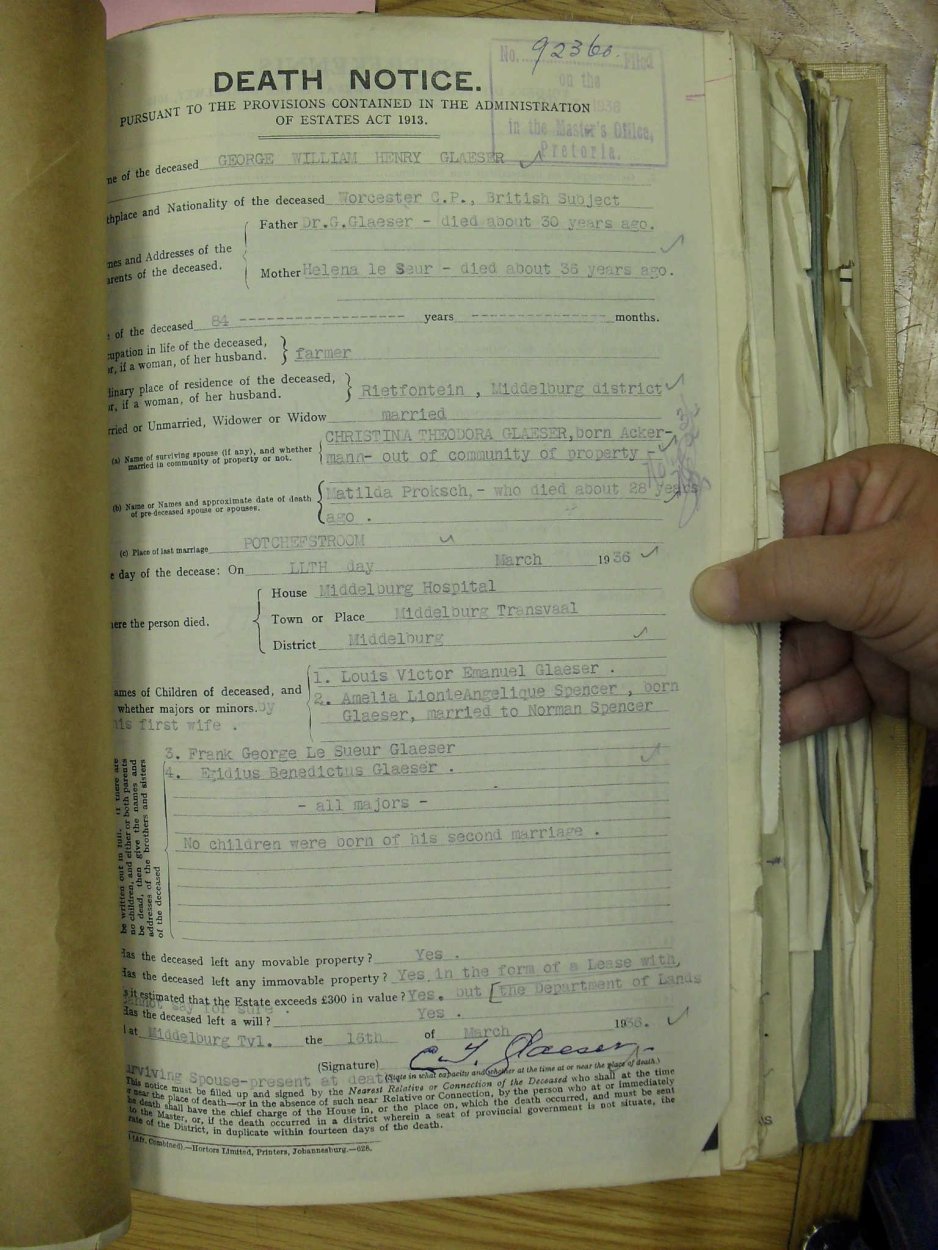 No. 92360 Filed
on the
1936
in the Master's Office,
Pretoria.
DEATH NOTICE.
PURSUANT TO THE PROVISIONS CONTAINED IN THE ADMINISTRATION
OF ESTATES ACT 1913.
me of the deceased GEORGE WILLIAM HENRY GLAESER
thplace and Nationality of the deceased Worcester C.P., British Subject
mes and Addresses of the
arents of the deceased.
Father Dr.G.Glaeser - died about 30 years ago.
Mother Helena le Seur - died about 36 years ago.
of the deceased 84 years months.
cupation in life of the deceased,
or, if a woman, of her husband.
farmer
dinary place of residence of the deceased,
or, if a woman, of her husband.
Rietfontein , Middelburg district
rried or Unmarried, Widower or Widow married
(a) Name of surviving spouse (if any), and whether
married in community of property or not.
CHRISTINA THEODORA GLAESER,born Acker-
mann- out of community of property -
(b) Name or Names and approximate date of death
of pre-deceased spouse or spouses.
Matilda Proksch,- who died about 28 years
ago .
(c) Place of last marriage POTCHEFSTROOM
e day of the decease: On LLTH day March 1936
ere the person died.
House Middelburg Hospital
Town or Place Middelburg Transvaal
District Middelburg
ames of Children of deceased, and
whether majors or minors. by
his first wife .
1. Louis Victor Emanuel Glaeser .
2. Amelia LionieAngelique Spencer , born
Glaeser, married to Norman Spencer
3. Frank George Le Sueur Glaeser
4. Egidius Benedictus Glaeser .
- all majors -
No children were born of his second marriage .
be written out in full. If there are
no children, and either or both parents
be dead, then give the names and
addresses of the brothers and sisters
of the deceased
Has the deceased left any movable property? Yes .
Has the deceased left any immovable property? Yes in the form of a Lease with
s it estimated that the Estate exceeds £300 in value? Yes. but [the Department of Lands
cannot say for sure .
Has the deceased left a will? Yes .
at Middelburg Tvl. the 16th of March 1936.
(Signature) C. T. Glaeser
(State in what capacity and whether at the time at or near the place of death.)
urviving Spouse-present at death
This notice must be filled up and signed by the Nearest Relative or Connection of the Deceased who shall at the time
or near the place of death—or in the absence of such near Relative or Connection, by the person who at or immediately
he death shall have the chief charge of the House in, or the place on, which the death occurred, and must be sent
to the Master, or, if the death occurred in a district wherein a seat of provincial government is not situate, the
rate of the District, in duplicate within fourteen days of the death.
Combined).—Hortors Limited, Printers, Johannesburg.—628.